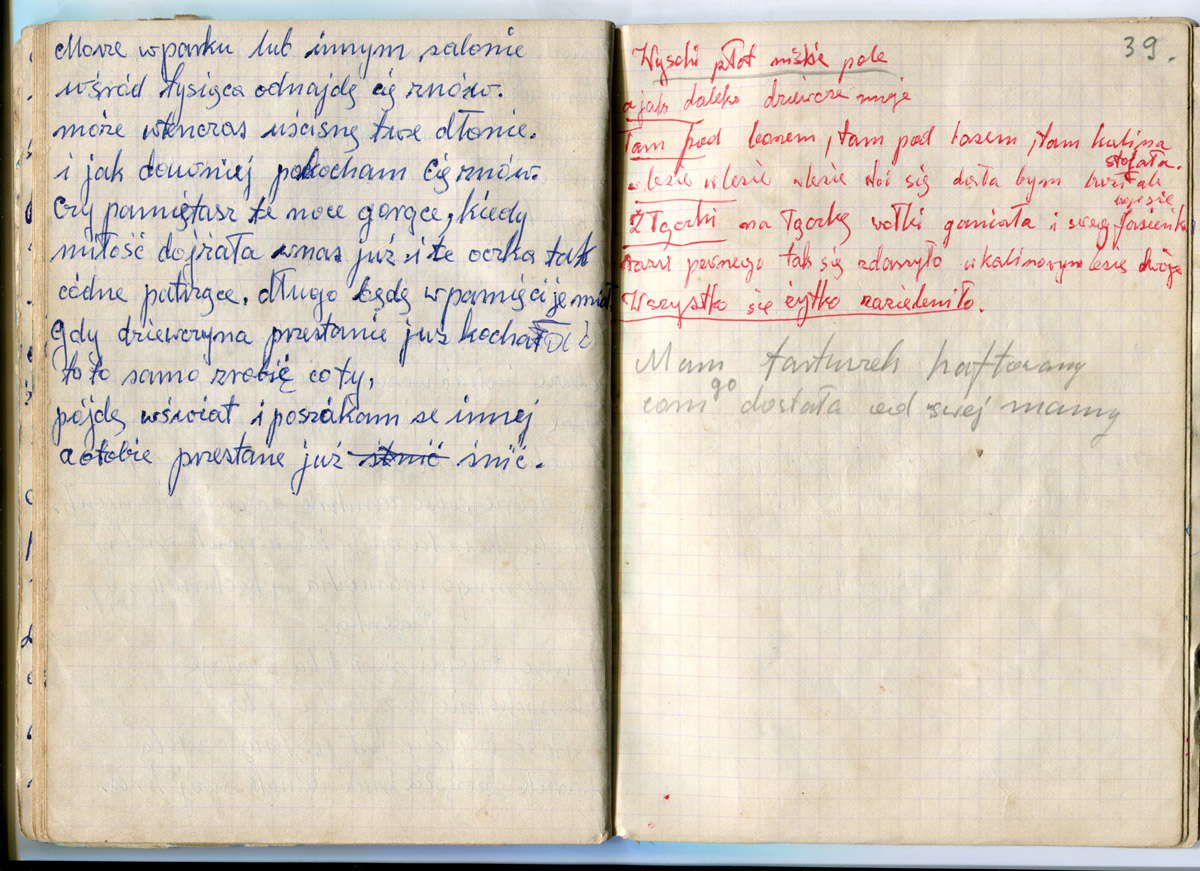 Morze wparku lub innym salonie
wśród tysięca odnajdę cię znów.
może wtenczas uścisnę twe dłonie.
i jak dawniej pokocham Cię znów.
Czy pamiętasz te noce gorące, kiedy
miłość dojżała wnas już i te oczka tak
códne patrzące, długo będę wpamięci je miał
Gdy dziewczyna przestanie już kochać
to to samo zrobię co ty,
pójdę wświat i poszókam se innej
a otobie przestane już śnić.
39.
Wysoki płot niskie pole
a jak daleko dziewcze moje
Tam pod borem, tam pod lasem, tam kalina
stojała.
w lesie w lesie w lesie
Z łgorki na łgorkę wołki ganiała i swego Jasieńka
razu pewnego tak się zdarzyło w kalinowym lesię
Wszystko się żytko zazieleniło.
Mam fartuzek haftowany
com go dostała od swej mamy